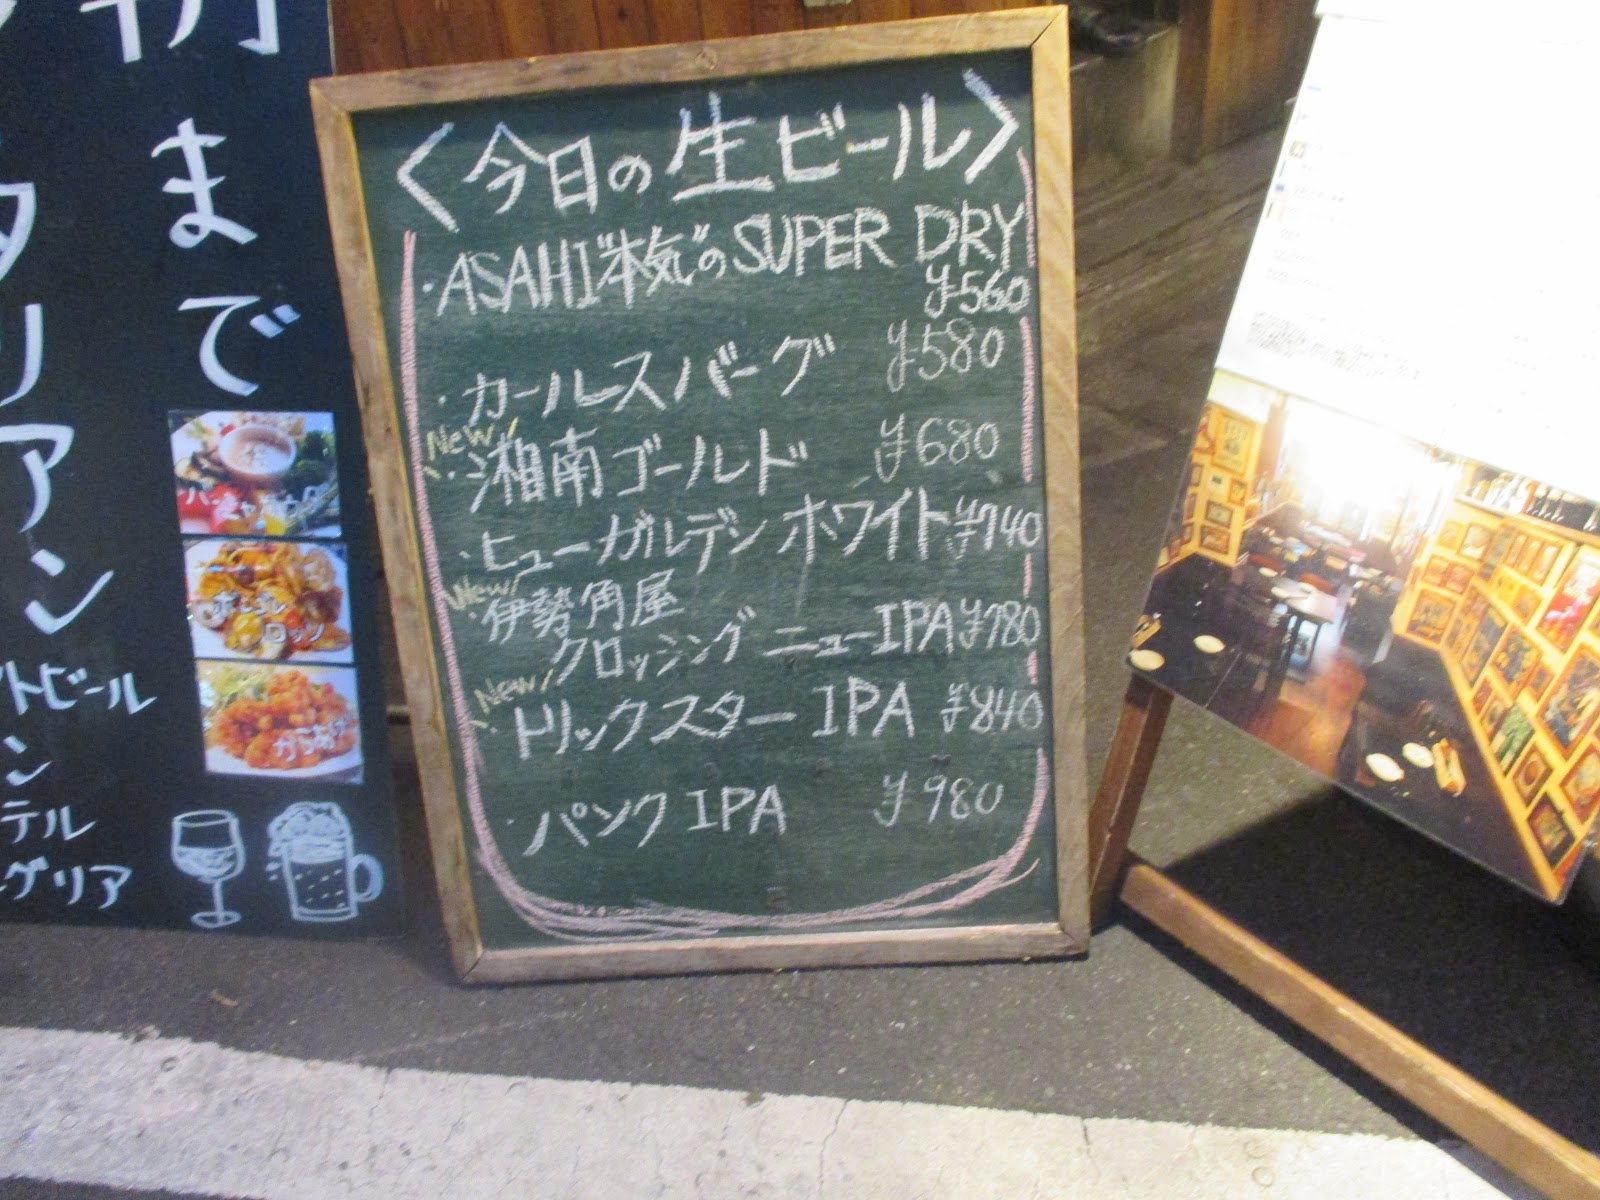 まで
タリアン
トビール
ン
テル
グリア
<今日の生ビール>
・ASAHI"本気"のSUPER DRY
¥560
・カールスバーグ ¥580
New!
・湘南ゴールド ¥680
・ヒューガルデン ホワイト ¥740
New!
・伊勢角屋
クロッシング ニューIPA ¥780
New!
・トリックスター IPA ¥840
・パンク IPA ¥980